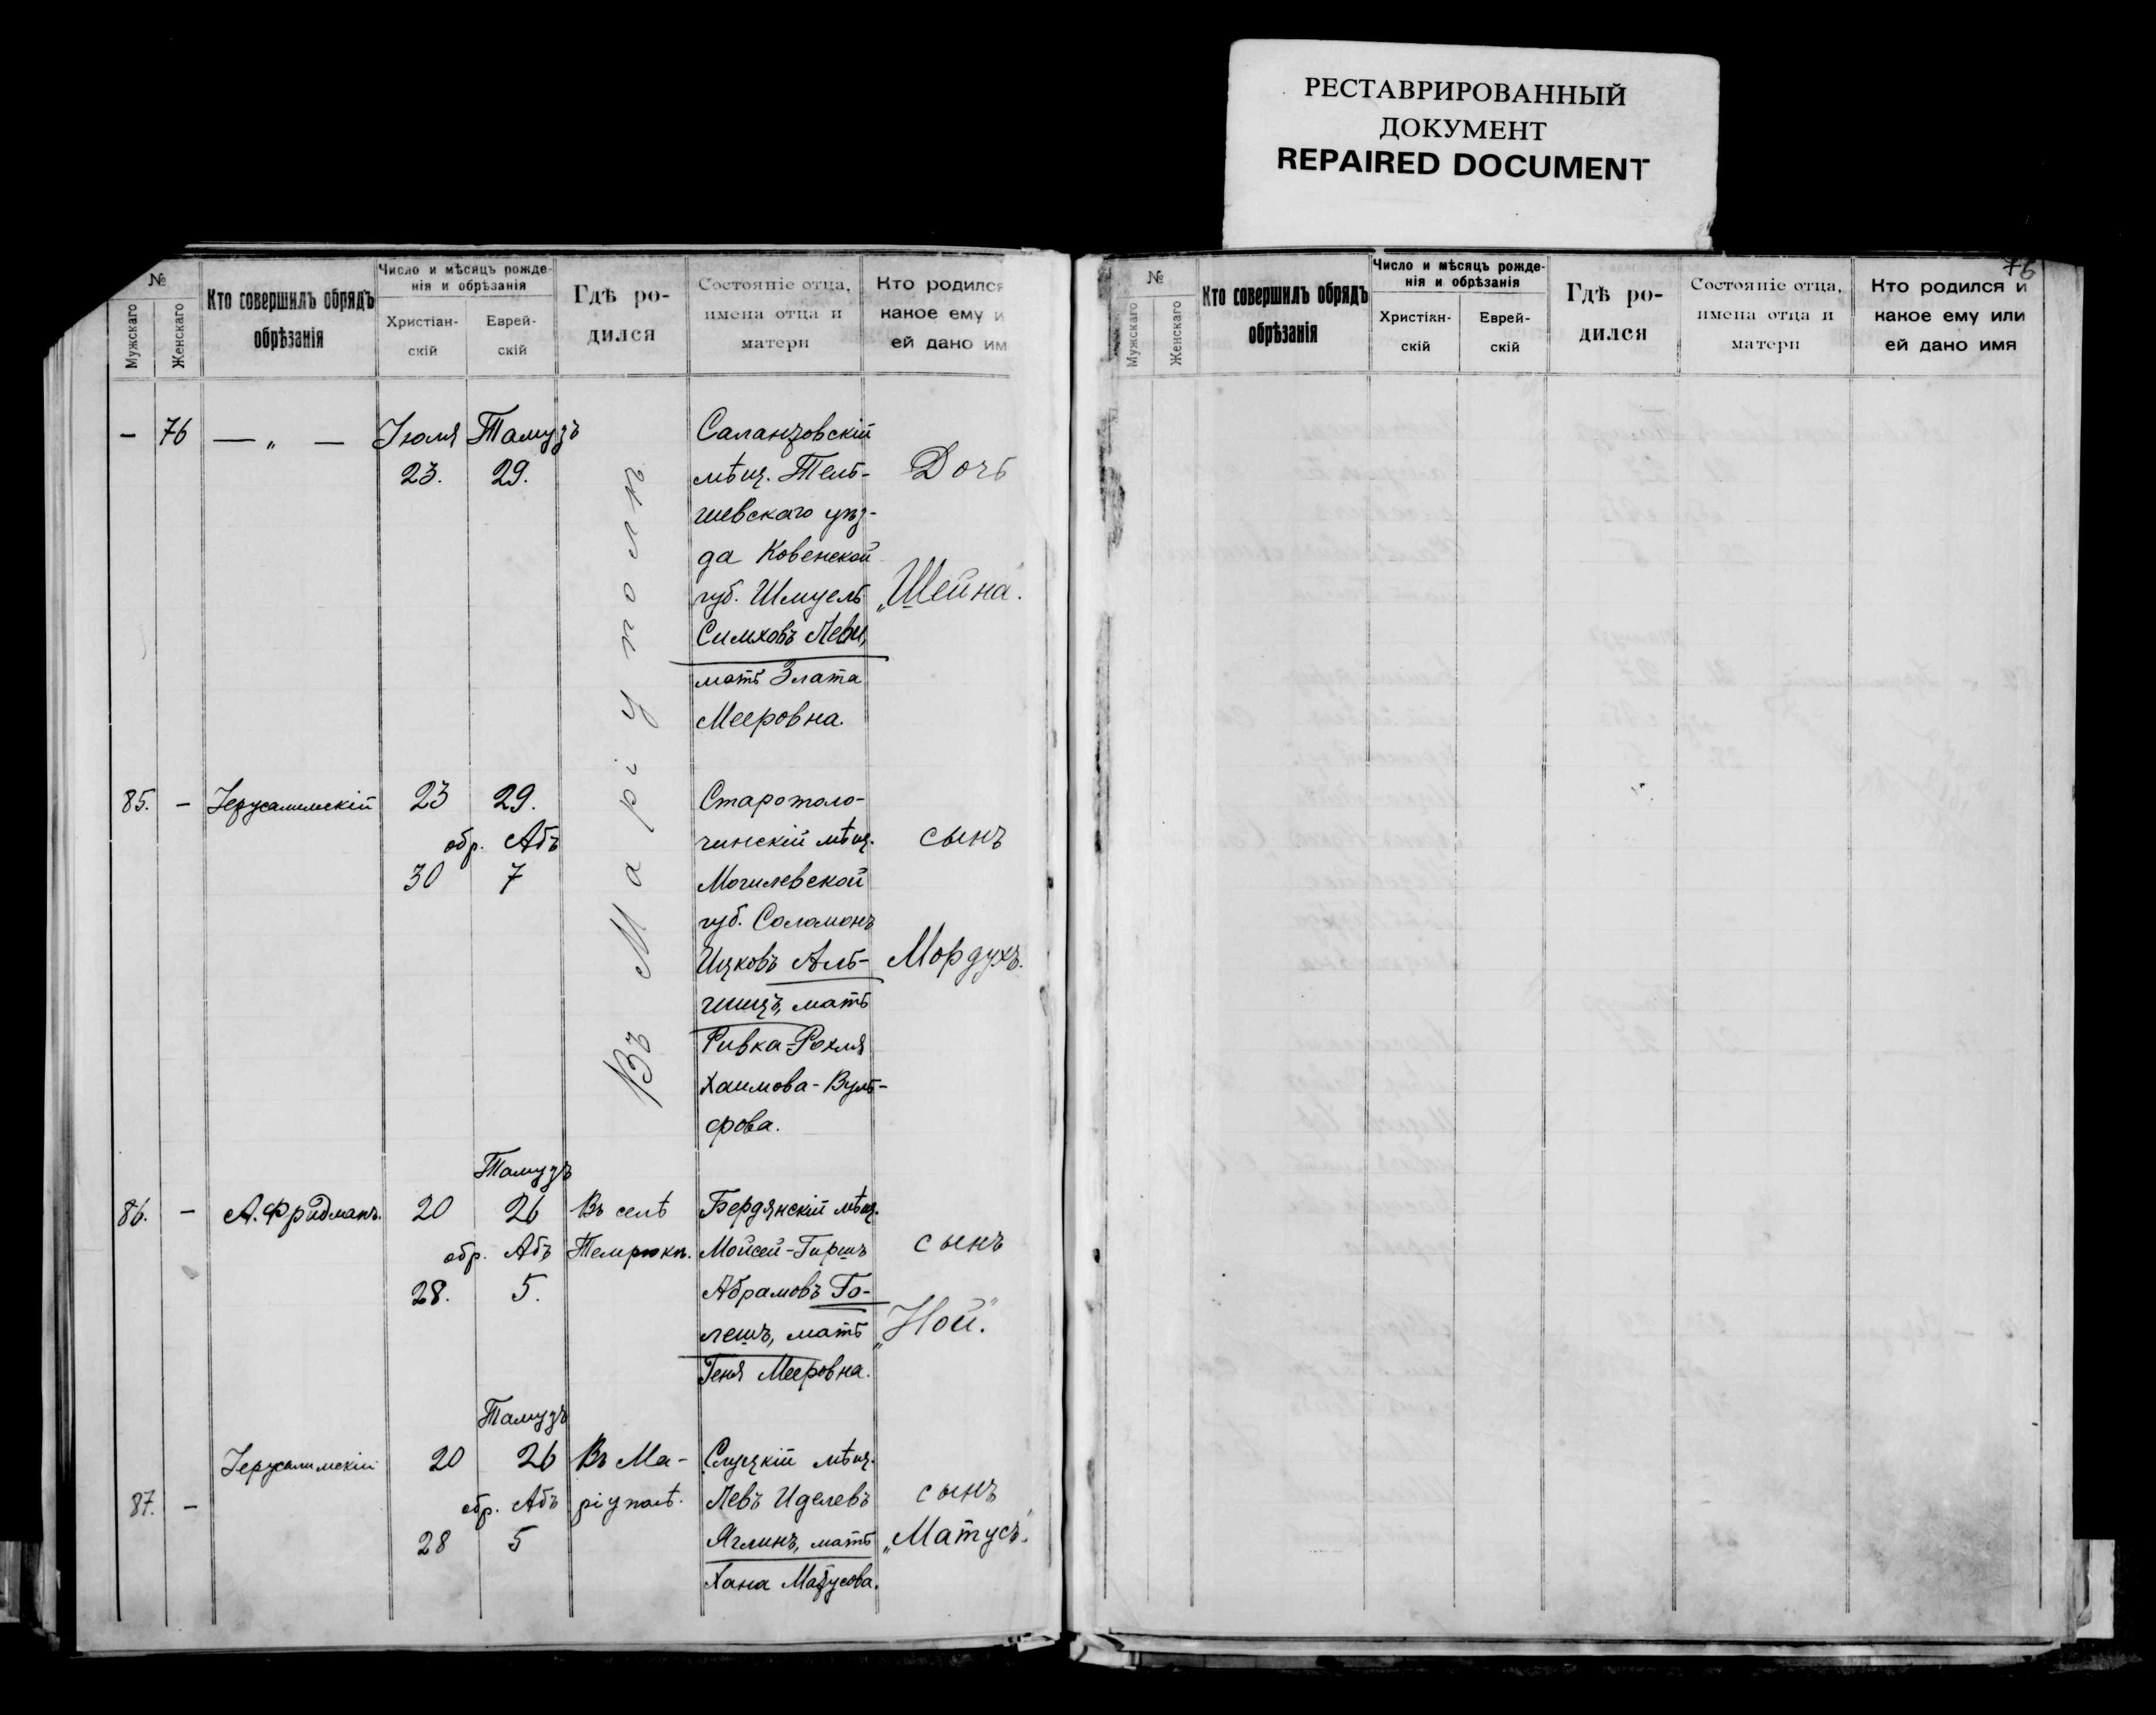 РЕСТАВРИРОВАННЫЙ
ДОКУМЕНТ
REPAIRED DOCUMENT
№
Мужскаго
Женскаго
Кто совершилъ обрядъ
обрѣзанія
Число и мѣсяцъ рожде-
нія и обрѣзанія
Христіан-
скій
Еврей-
скій
Гдѣ ро-
дился
Состояніе отца,
имена отца и
матери
Кто родился
какое ему и
ей дано им
— 76 — „ — Іюля Тамузъ
23. 29.
Въ Маріуполѣ
Салантовскій
мѣщ. Тель-
шевскаго уѣз-
да Ковенской
губ. Шмуель
Симховъ Леви,
мать Злата
Мееровна.
Дочь
„Шейна".
85. — Іерусалимскій 23 29.
обр. Абъ
30 7
Старотоло-
чинскій мѣщ.
Могилевской
губ. Соломонъ
Ицковъ Аль-
шицъ, мать
Ривка-Рохля
Хаимова-Вуль-
фова.
сынъ
Мордухъ.
Тамузъ
86. — А. Фридманъ. 20 26
обр. Абъ
28. 5.
Въ селѣ
Темрюкъ.
Бердянскій мѣщ.
Мойсей-Гиршъ
Абрамовъ Го-
лешъ, мать
Геня Мееровна.
сынъ
„Ной".
Тамузъ
87. — Іерусалимскій 20 26
обр. Абъ
28 5
Въ Ма-
ріуполѣ.
Слуцкій мѣщ.
Левъ Иделевъ
Яглинъ, мать
Хана Матусова.
сынъ
„Матусъ".
76
№
Мужскаго
Женскаго
Кто совершилъ обрядъ
обрѣзанія
Число и мѣсяцъ рожде-
нія и обрѣзанія
Христіан-
скій
Еврей-
скій
Гдѣ ро-
дился
Состояніе отца,
имена отца и
матери
Кто родился и
какое ему или
ей дано имя